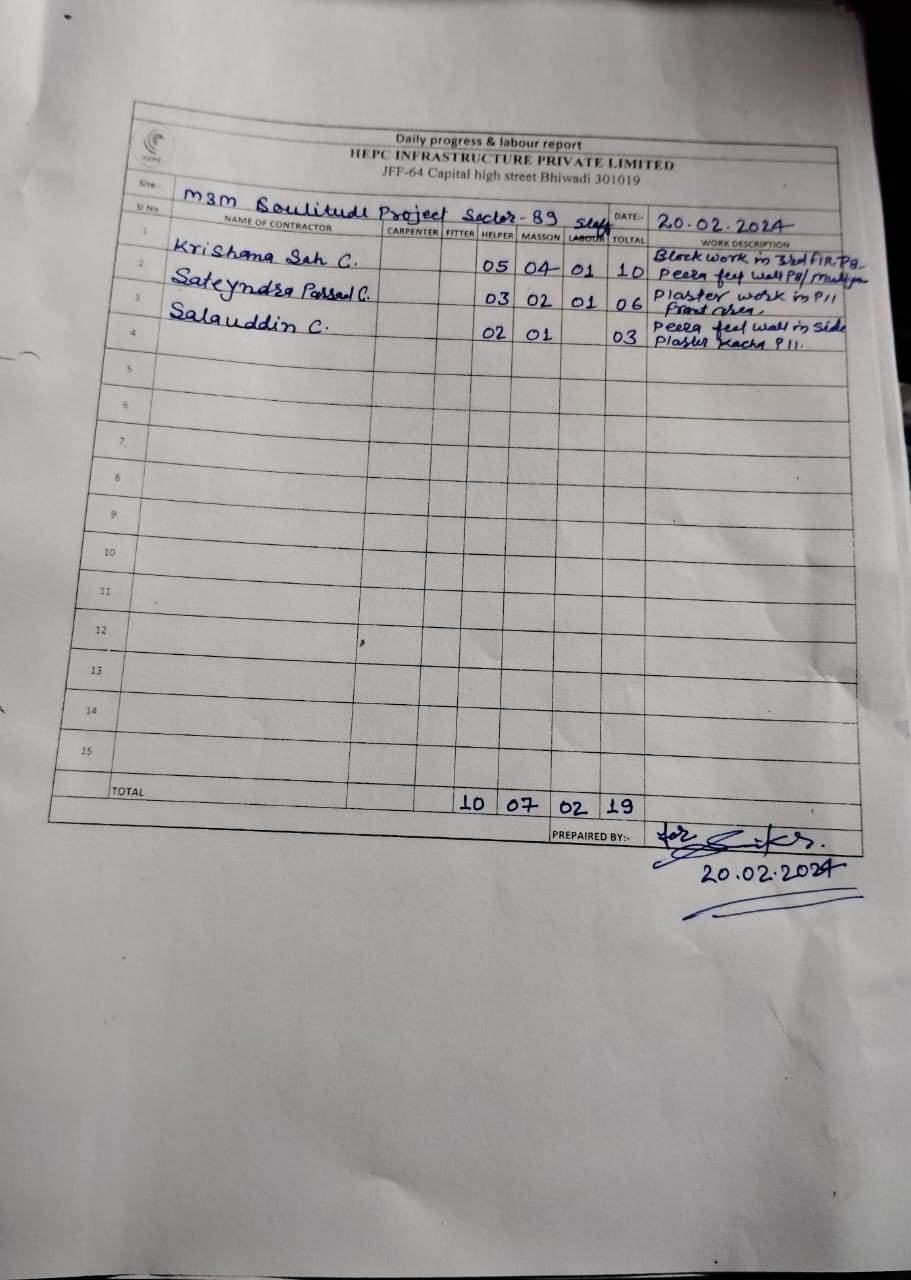 Daily progress & labour report
HEPC INFRASTRUCTURE PRIVATE LIMITED
JFF-64 Capital high street Bhiwadi 301019
HEPC
Site M3M Soulitude Project Sector-89 DATE:- 20.02.2024
Staff
Sl No NAME OF CONTRACTOR CARPENTER FITTER HELPER MASSON LABOUR TOLTAL WORK DESCRIPTION
1
Krishana Sah C. 05 04 01 10 Block work in 3rd Flr. P8
2 wall P8/
Sateyndra Parsad C. 03 02 01 06 Plaster work in P11
3 front area.
Salauddin C. 02 01 03 wall in side
4 Plaster Kacha P11.
5
6
7
8
9
10
11
12
13
14
15
TOTAL 10 07 02 19
PREPAIRED BY:- for
20.02.2024